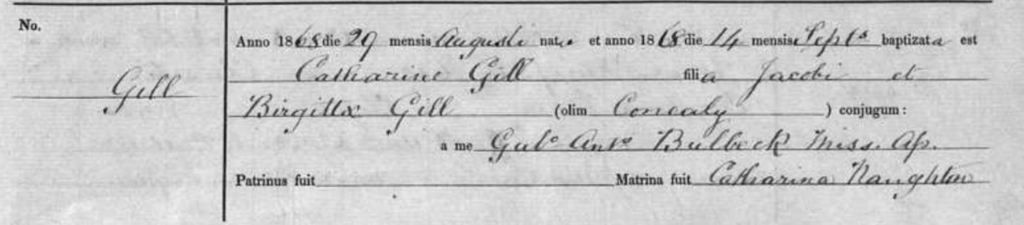 No.
Anno 1868 die 29 mensis Augusti nata et anno 1868 die 14 mensis Septs baptizata est
Gill
Catharine Gill filia Jacobi et
Birgittæ Gill (olim Conealy ) conjugum :
a me Gulo Anto Bulbeck Miss. Ap.
Patrinus fuit Matrina fuit Catharina Naughton